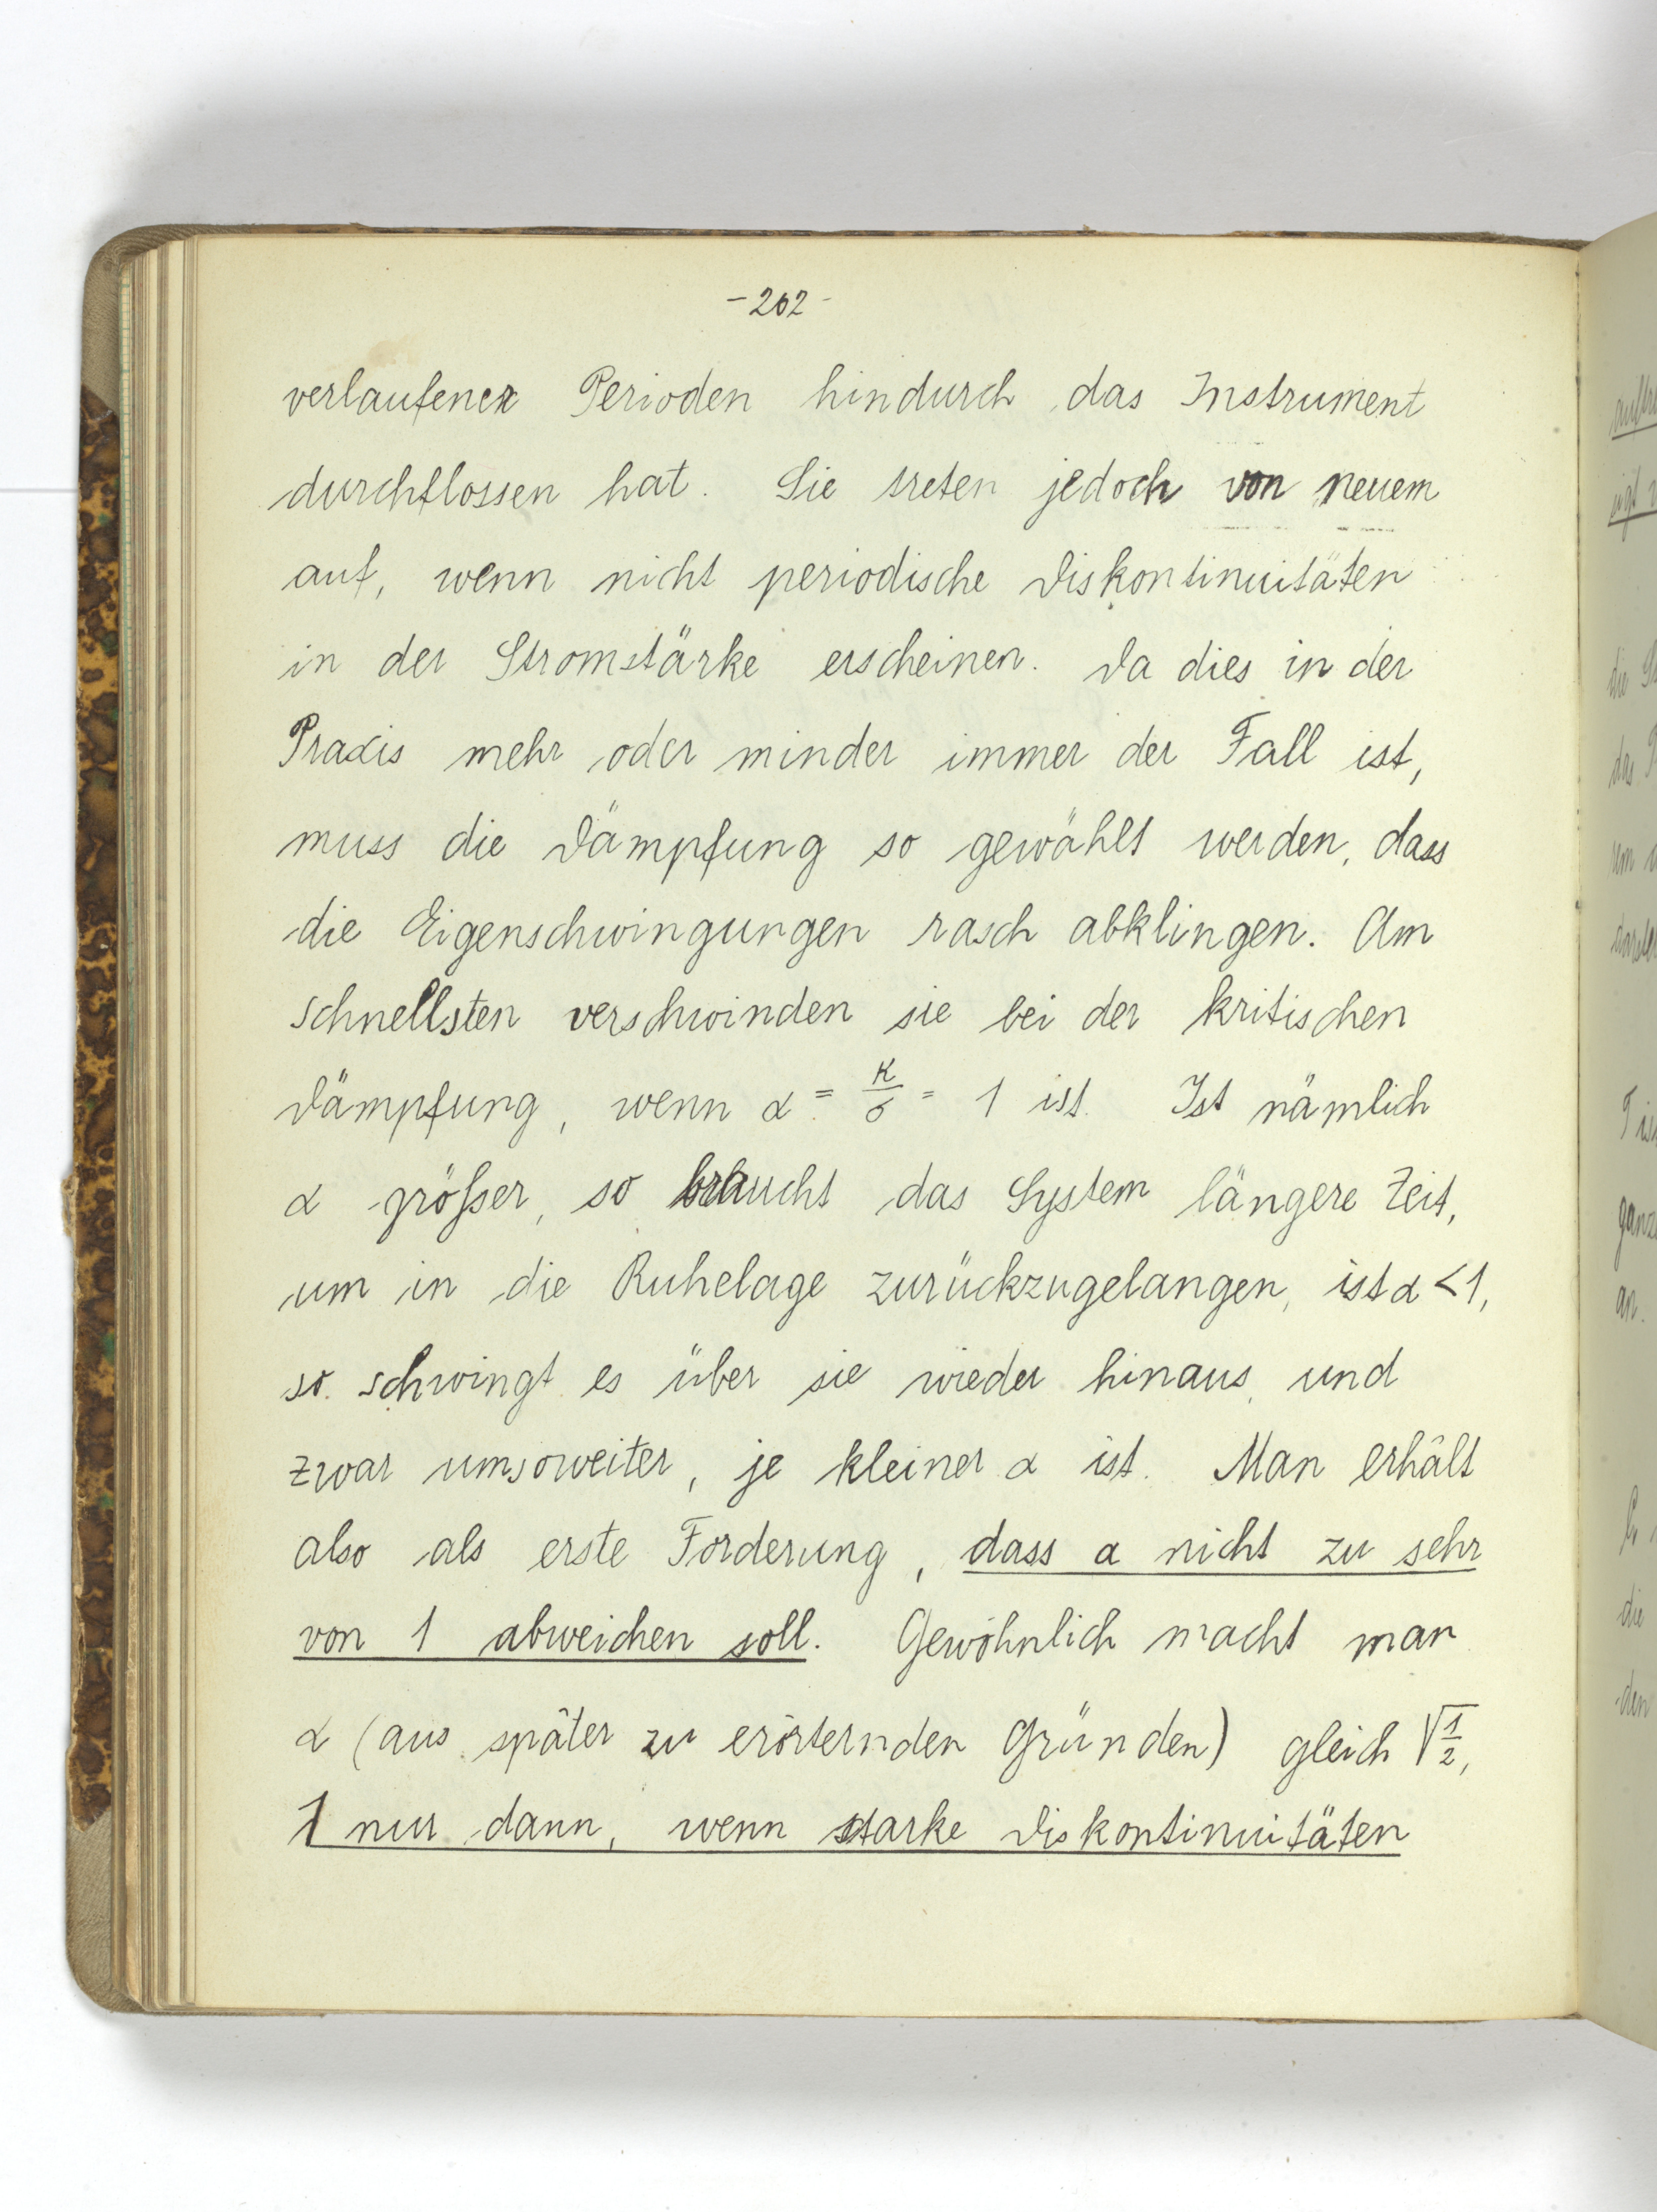 -202-
verlaufener Perioden hindurch das Instrument
durchflossen hat. Sie treten jedoch von neuem
auf, wenn nicht periodische Diskontinuitäten
in der Stromstärke erscheinen. Da dies in der
Praxis mehr oder minder immer der Fall ist,
muss die Dämpfung so gewählt werden, dass
die Eigenschwingungen rasch abklingen. Am
schnellsten verschwinden sie bei der kritischen
Dämpfung, wenn α = κ/σ = 1 ist. Ist nämlich
α größer, so braucht das System längere Zeit,
um in die Ruhelage zurückzugelangen, ist α < 1,
so schwingt es über sie wieder hinaus, und
zwar umsoweiter, je kleiner α ist. Man erhält
also als erste Forderung, dass α nicht zu sehr
von 1 abweichen soll. Gewöhnlich macht man
α (aus später zu erörternden Gründen) gleich √1/2,
1 nur dann, wenn starke Diskontinuitäten